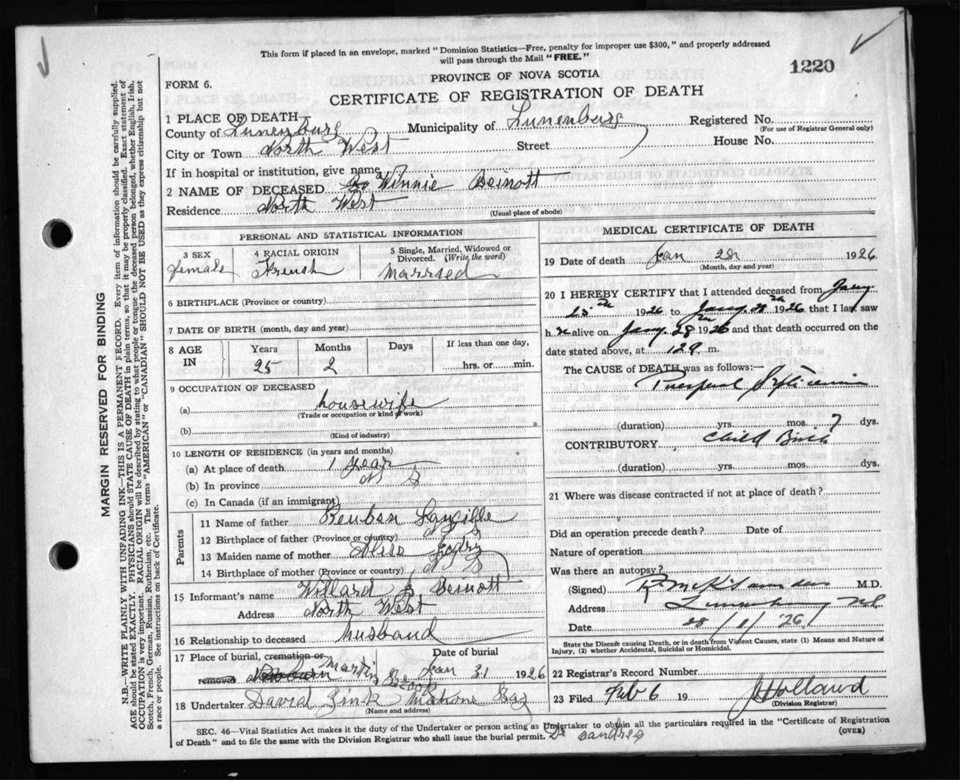 This form if placed in an envelope, marked "Dominion Statistics—Free, penalty for improper use $300," and properly addressed
will pass through the Mail "FREE."
1220
FORM 6.
PROVINCE OF NOVA SCOTIA
CERTIFICATE OF REGISTRATION OF DEATH
1 PLACE OF DEATH
County of Lunenburg Municipality of Lunenburg Registered No.
(For use of Registrar General only)
City or Town North West Street House No.
If in hospital or institution, give name
2 NAME OF DECEASED Winnie Beinott
Residence North West
(Usual place of abode)
PERSONAL AND STATISTICAL INFORMATION
3 SEX 4 RACIAL ORIGIN 5 Single, Married, Widowed or Divorced. (Write the word)
female French Married
6 BIRTHPLACE (Province or country)
7 DATE OF BIRTH (month, day and year)
8 AGE IN Years Months Days If less than one day,
25 2 hrs. or min.
9 OCCUPATION OF DECEASED
(a) housewife
(Trade or occupation or kind of work)
(b)
(Kind of industry)
10 LENGTH OF RESIDENCE (in years and months)
(a) At place of death 1 year
(b) In province N S
(c) In Canada (if an immigrant)
Parents
11 Name of father Reuben Langille
12 Birthplace of father (Province or country) N S
13 Maiden name of mother
14 Birthplace of mother (Province or country) N S
15 Informant's name Willard Beinott
Address North West
16 Relationship to deceased husband
17 Place of burial, cremation or removal Date of burial
Martins Brook Jan 31 1926
18 Undertaker David Zink Mahone Bay
(Name and address)
MEDICAL CERTIFICATE OF DEATH
19 Date of death Jan 28 1926
(Month, day and year)
20 I HEREBY CERTIFY that I attended deceased from Jany
25th 1926 to Jany 28th 1926 that I last saw
her alive on Jany 28 1926 and that death occurred on the
date stated above, at m.
The CAUSE of DEATH was as follows:—
Puerperal Septicaemia
(duration) yrs. mos. 7 dys.
CONTRIBUTORY Child Birth
(duration) yrs. mos. dys.
21 Where was disease contracted if not at place of death?
Did an operation precede death? Date of
Nature of operation
Was there an autopsy?
(Signed) M.D.
Address Lunenburg N.S.
Date 28/1/26
State the Disease causing Death, or in death from Violent Causes, state (1) Means and Nature of
Injury, (2) whether Accidental, Suicidal or Homicidal.
22 Registrar's Record Number
23 Filed Feb 6 19 Holland
(Division Registrar)
SEC. 46—Vital Statistics Act makes it the duty of the Undertaker or person acting as Undertaker to obtain all the particulars required in the "Certificate of Registration
of Death" and to file the same with the Division Registrar who shall issue the burial permit.
MARGIN RESERVED FOR BINDING
N.B.—WRITE PLAINLY WITH UNFADING INK—THIS IS A PERMANENT RECORD. Every item of information should be carefully supplied.
AGE should be stated EXACTLY. PHYSICIANS should STATE CAUSE OF DEATH in plain terms, so that it may be properly classified. Exact statement of
OCCUPATION is very important. RACIAL ORIGIN will be described by stating to what people or tongue the deceased person belonged, whether English, Irish,
Scotch, French, German, Russian, Ruthenian, etc. The terms "AMERICAN" or "CANADIAN" SHOULD NOT BE USED as they express citizenship but not
a race or people. See instructions on back of Certificate.